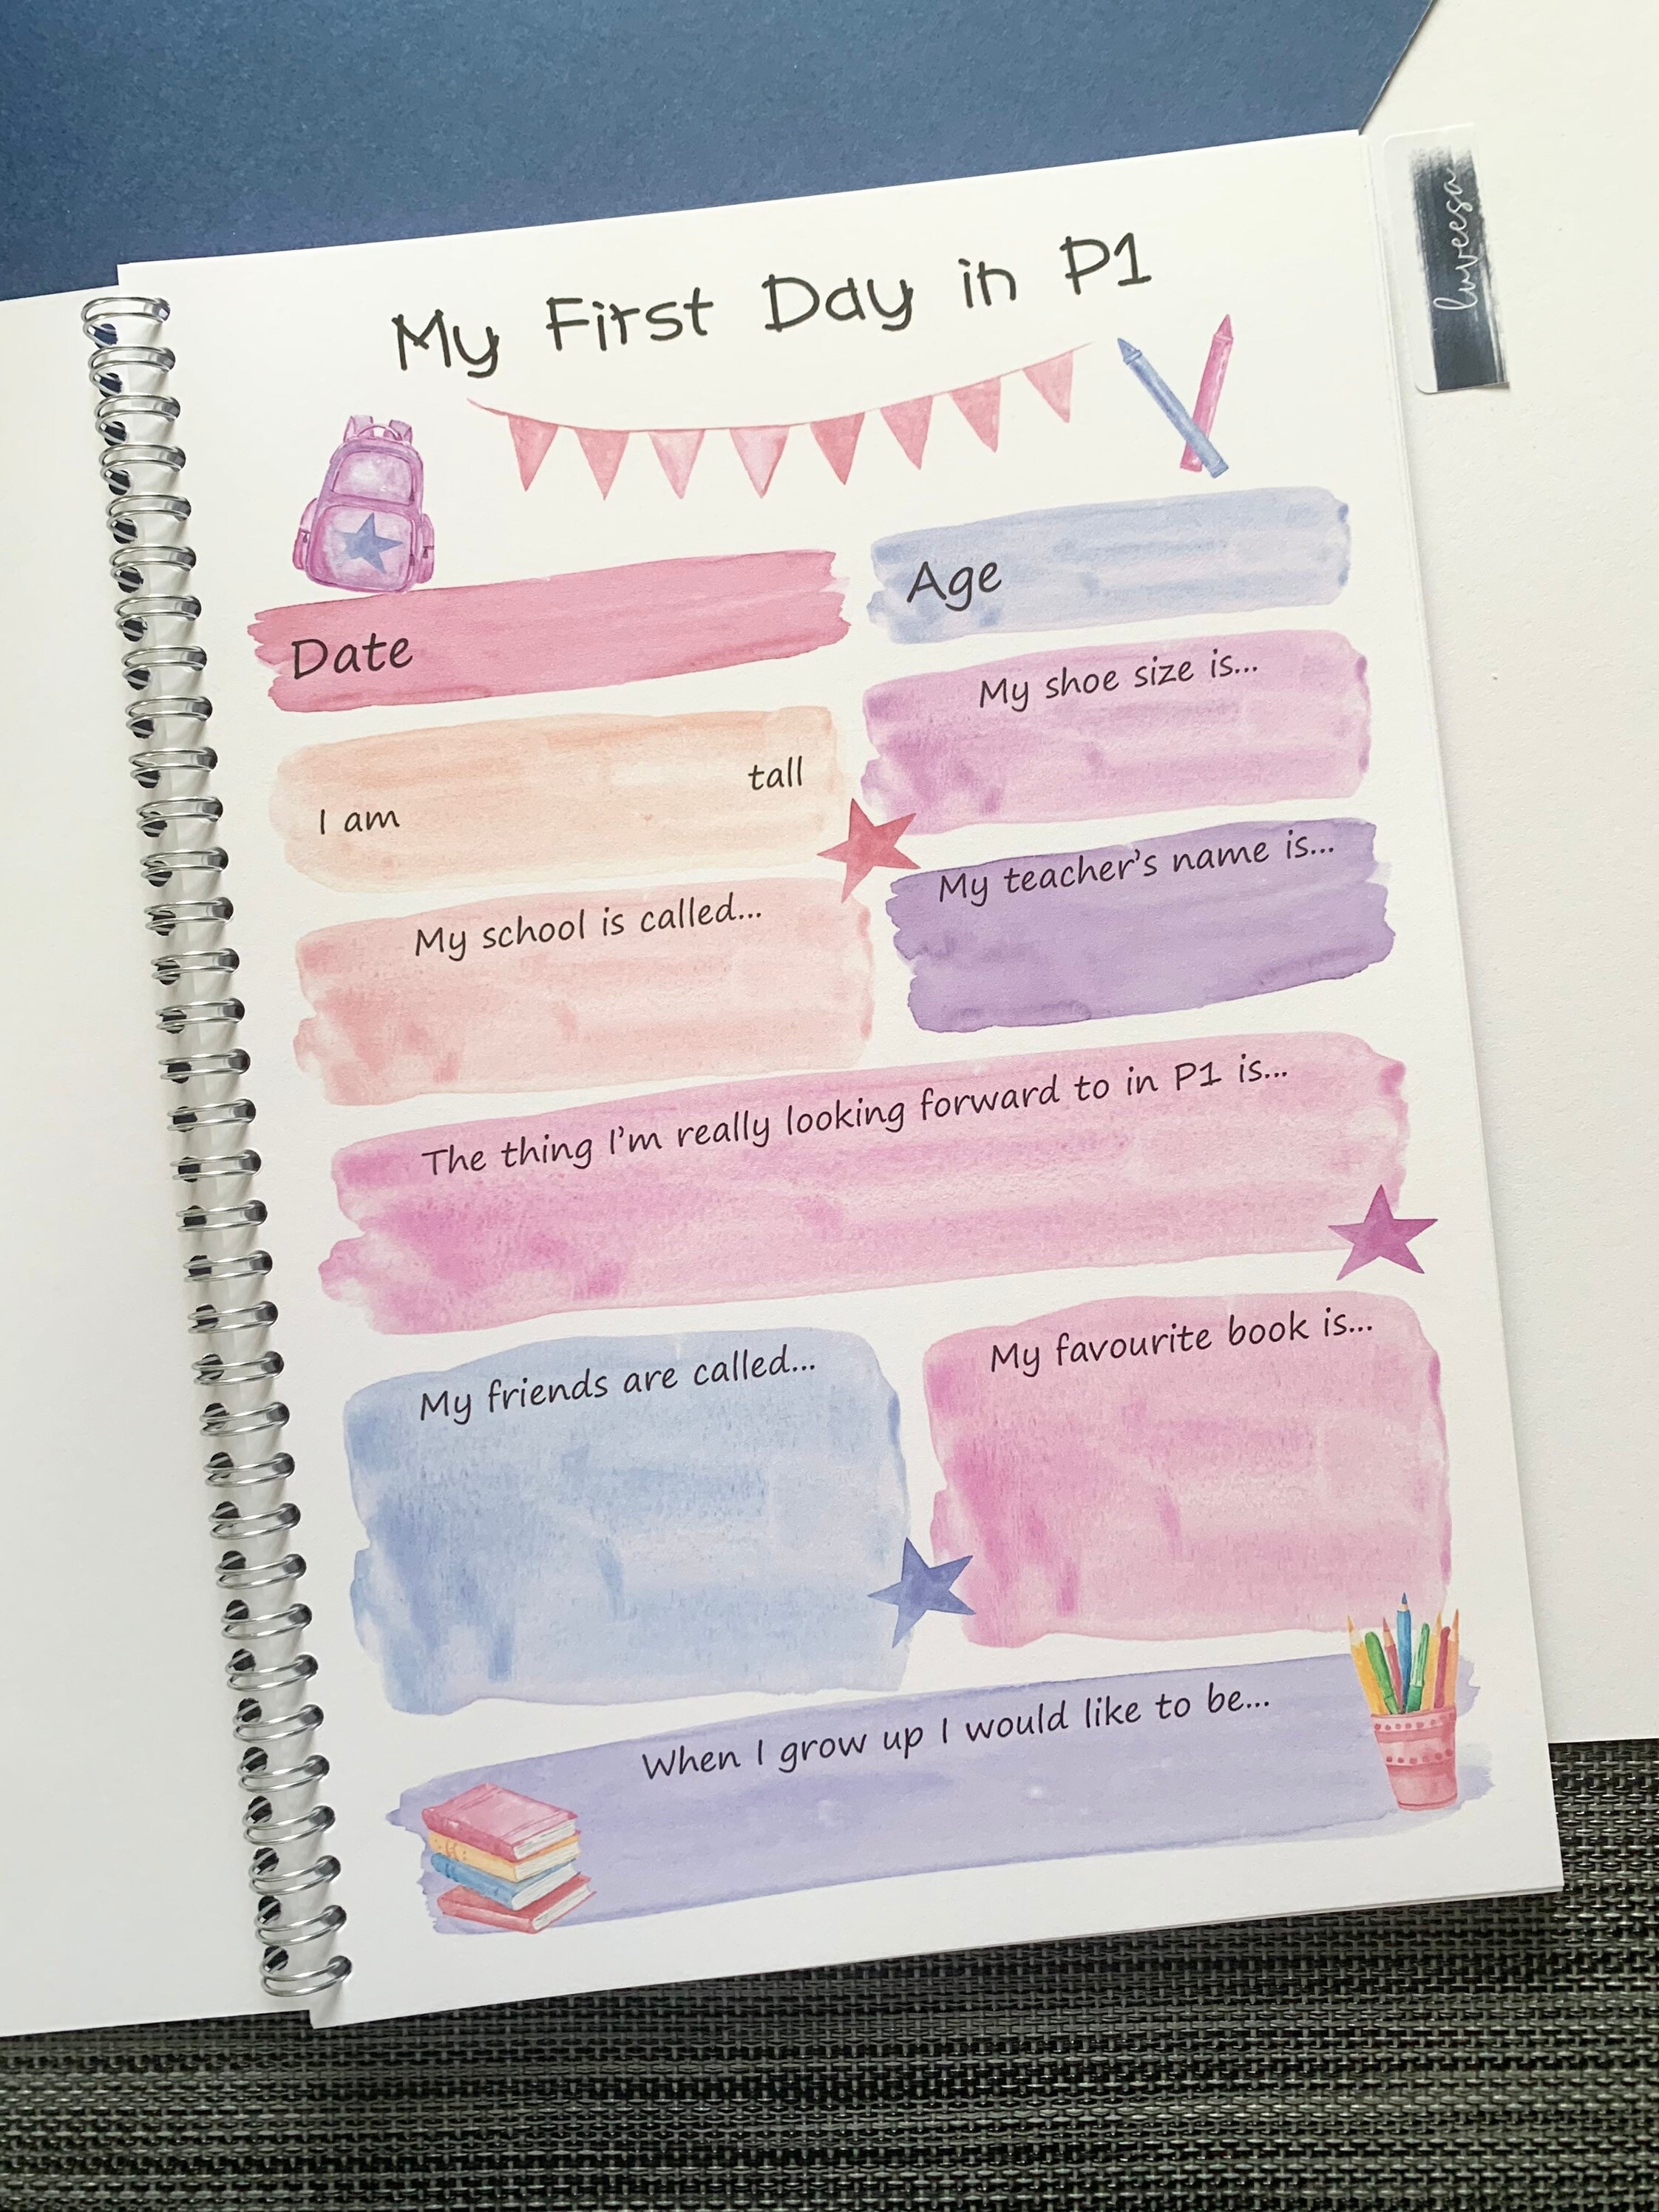 My First Day in P1
luveesa
Date
Age
My shoe size is...
I am
tall
My school is called...
My teacher's name is...
The thing I'm really looking forward to in P1 is...
My friends are called...
My favourite book is...
When I grow up I would like to be...